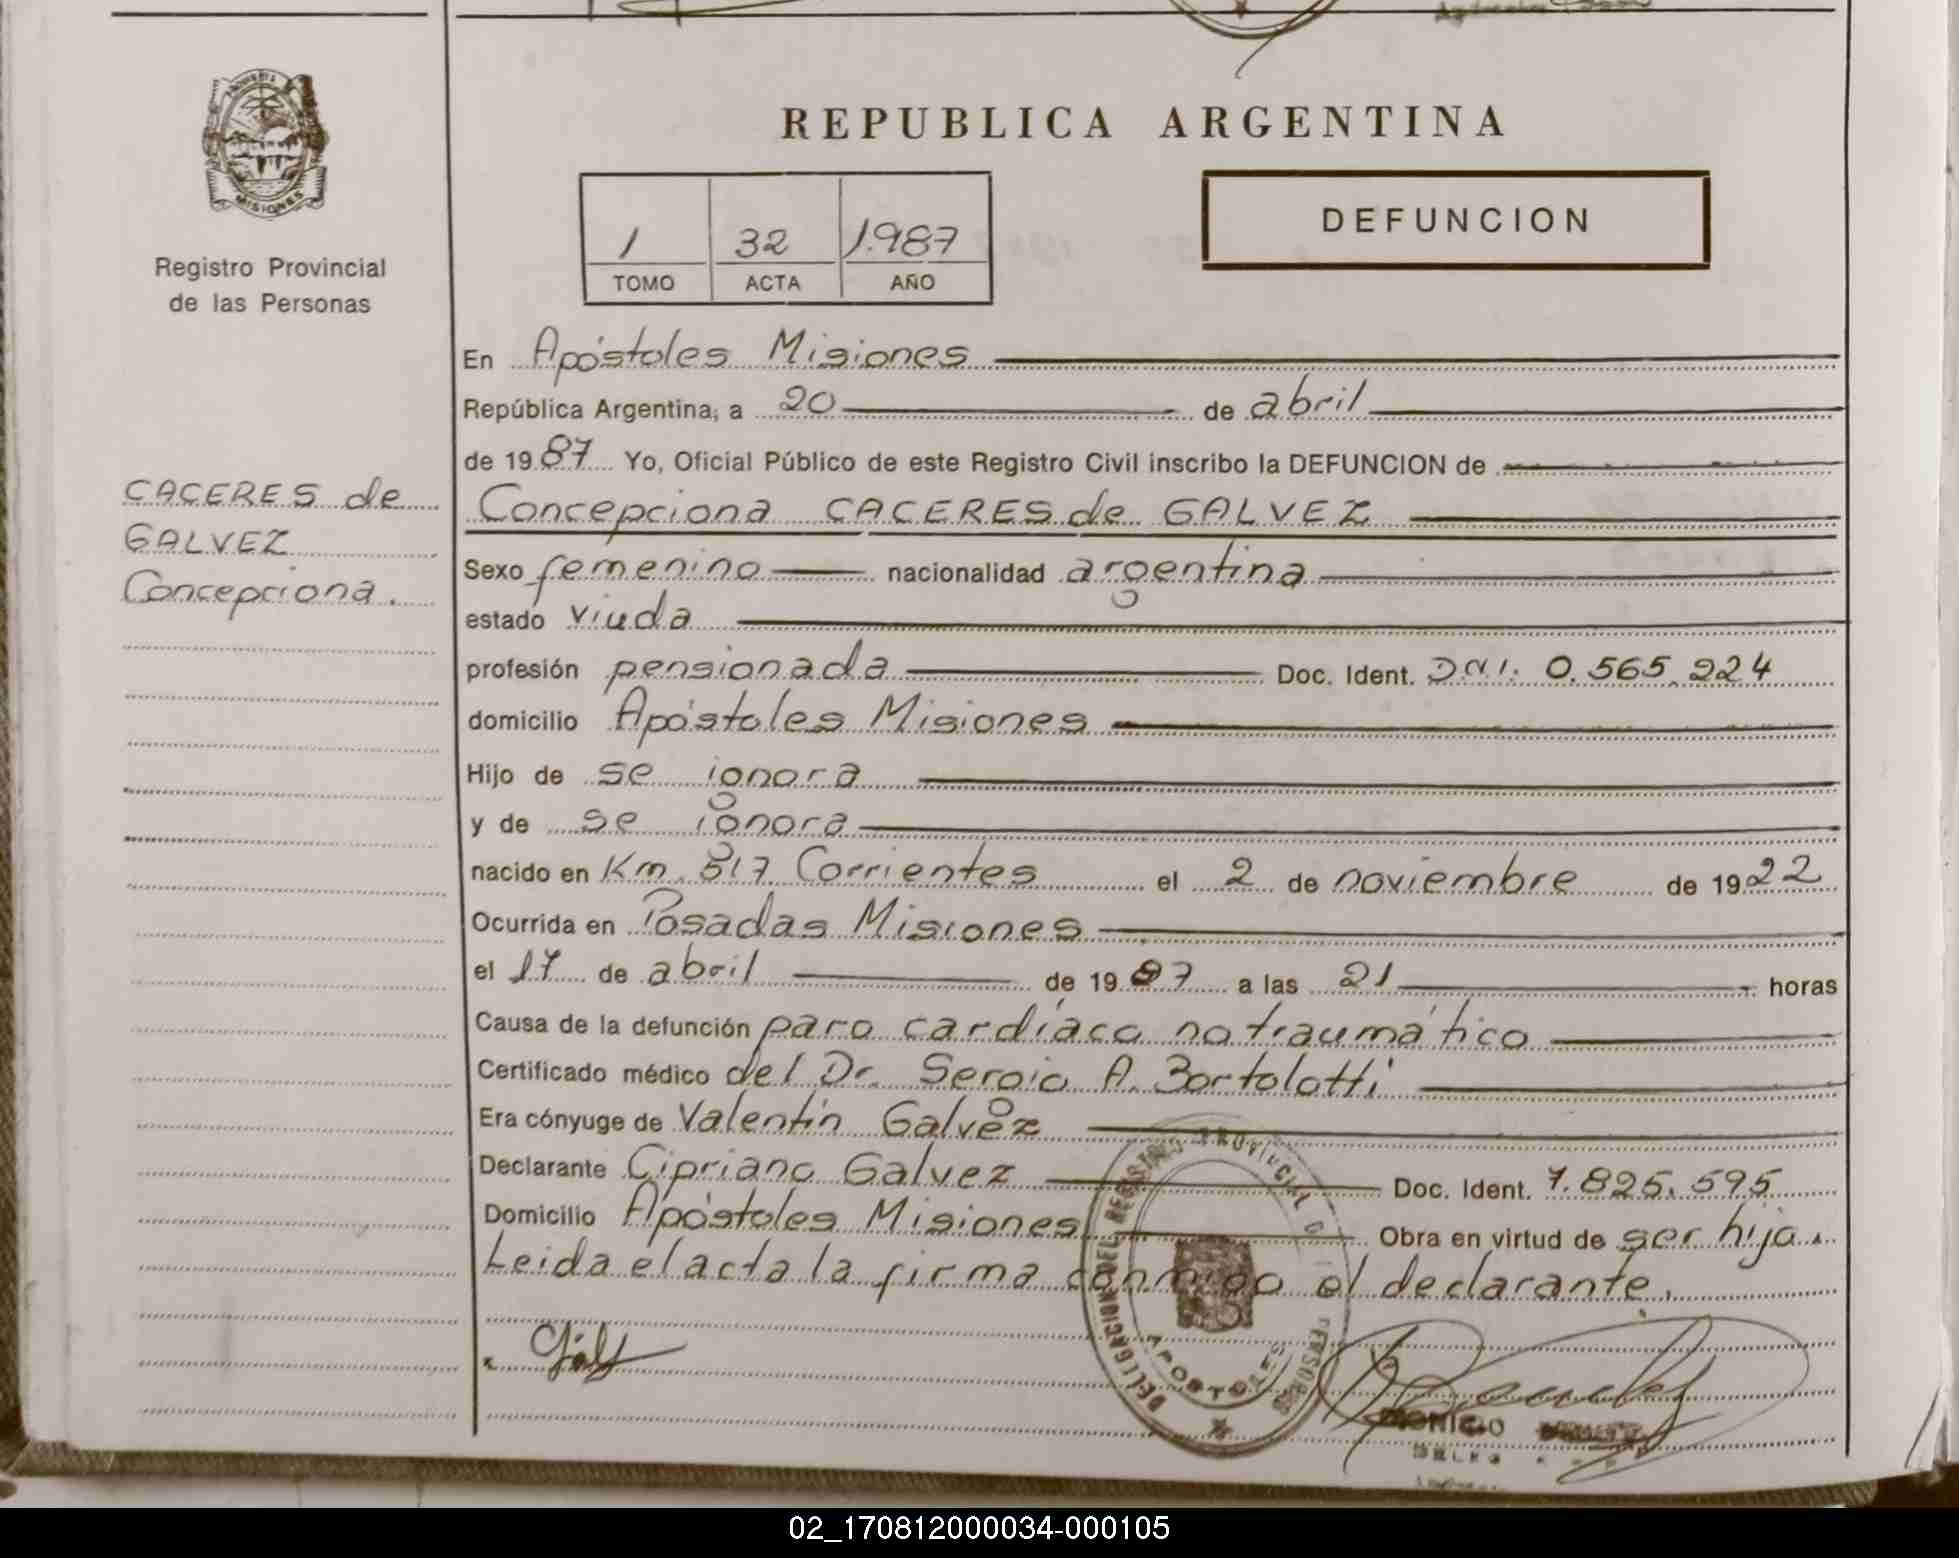 REPUBLICA ARGENTINA
MISIONES
Registro Provincial
de las Personas
1 32 1.987
TOMO ACTA AÑO
DEFUNCION
En Apóstoles Misiones
República Argentina, a 20 de abril
de 1987 Yo, Oficial Público de este Registro Civil inscribo la DEFUNCION de
CACERES de
GALVEZ
Concepciona.
Concepciona CACERES de GALVEZ
Sexo femenino nacionalidad argentina
estado viuda
profesión pensionada Doc. Ident. D.N.I. 0.565.224
domicilio Apóstoles Misiones
Hijo de se ignora
y de se ignora
nacido en Km. 517 Corrientes el 2 de noviembre de 1922
Ocurrida en Posadas Misiones
el 17 de abril de 1987 a las 21 horas
Causa de la defunción paro cardíaco no traumático
Certificado médico del Dr. Sergio A. Bortolotti
Era cónyuge de Valentín Galvez
Declarante Cipriano Galvez Doc. Ident. 7.825.595
Domicilio Apóstoles Misiones Obra en virtud de ser hijo.
Leida el acta la firma conmigo el declarante.
DELEGACION DEL REGISTRO PROVINCIAL DE PERSONAS
APOSTOLES
02_170812000034-000105